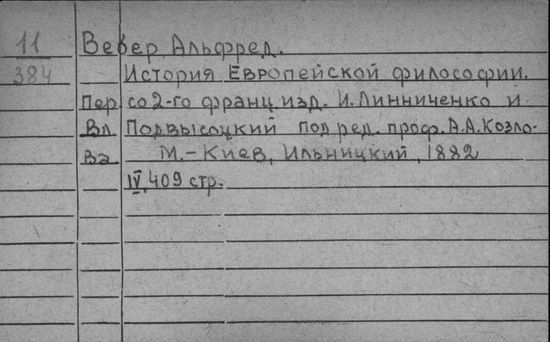 11 Вебер Альфред.
384 История Европейской философии.
Пер со 2-го франц изд. И. Линниченко и
Вл Подвысоцкий под ред. проф. А.А. Козло-
ва М.-Киев, Ильницкий, 1882
IV, 409 стр.